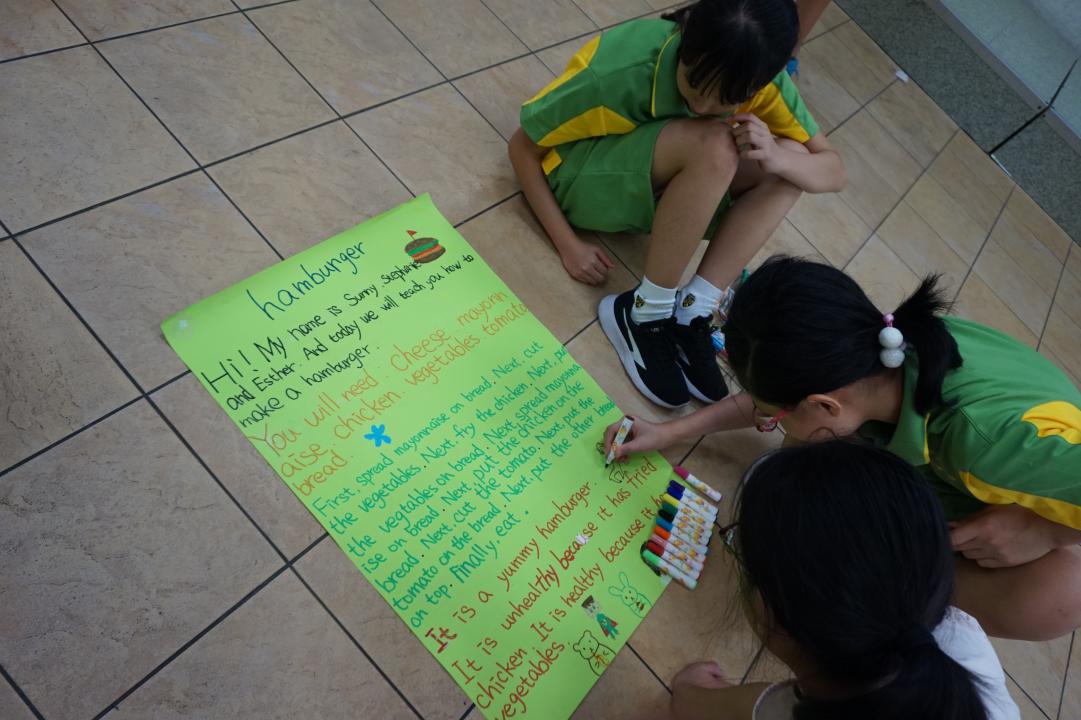 hamburger
Hi! My name is Sunny, Stephanie
and Esther. And today we will teach you how to
make a hamburger.
You will need: cheese mayonn
aise chicken. vegetables tomato
bread.
First, spread mayonnaise on bread. Next, cut
the vegetables. Next, fry the chicken. Next, put
the vegtables on bread. Next, spread mayonna
ise on bread. Next, put the chicken on the
bread. Next. cut the tomato. Next, put the
tomato on the bread. Next. put the other bread
on top. Finally, eat.
It is a yummy hamburger.
It is unhealthy because it has fried
chicken. It is healthy because it
vegetables